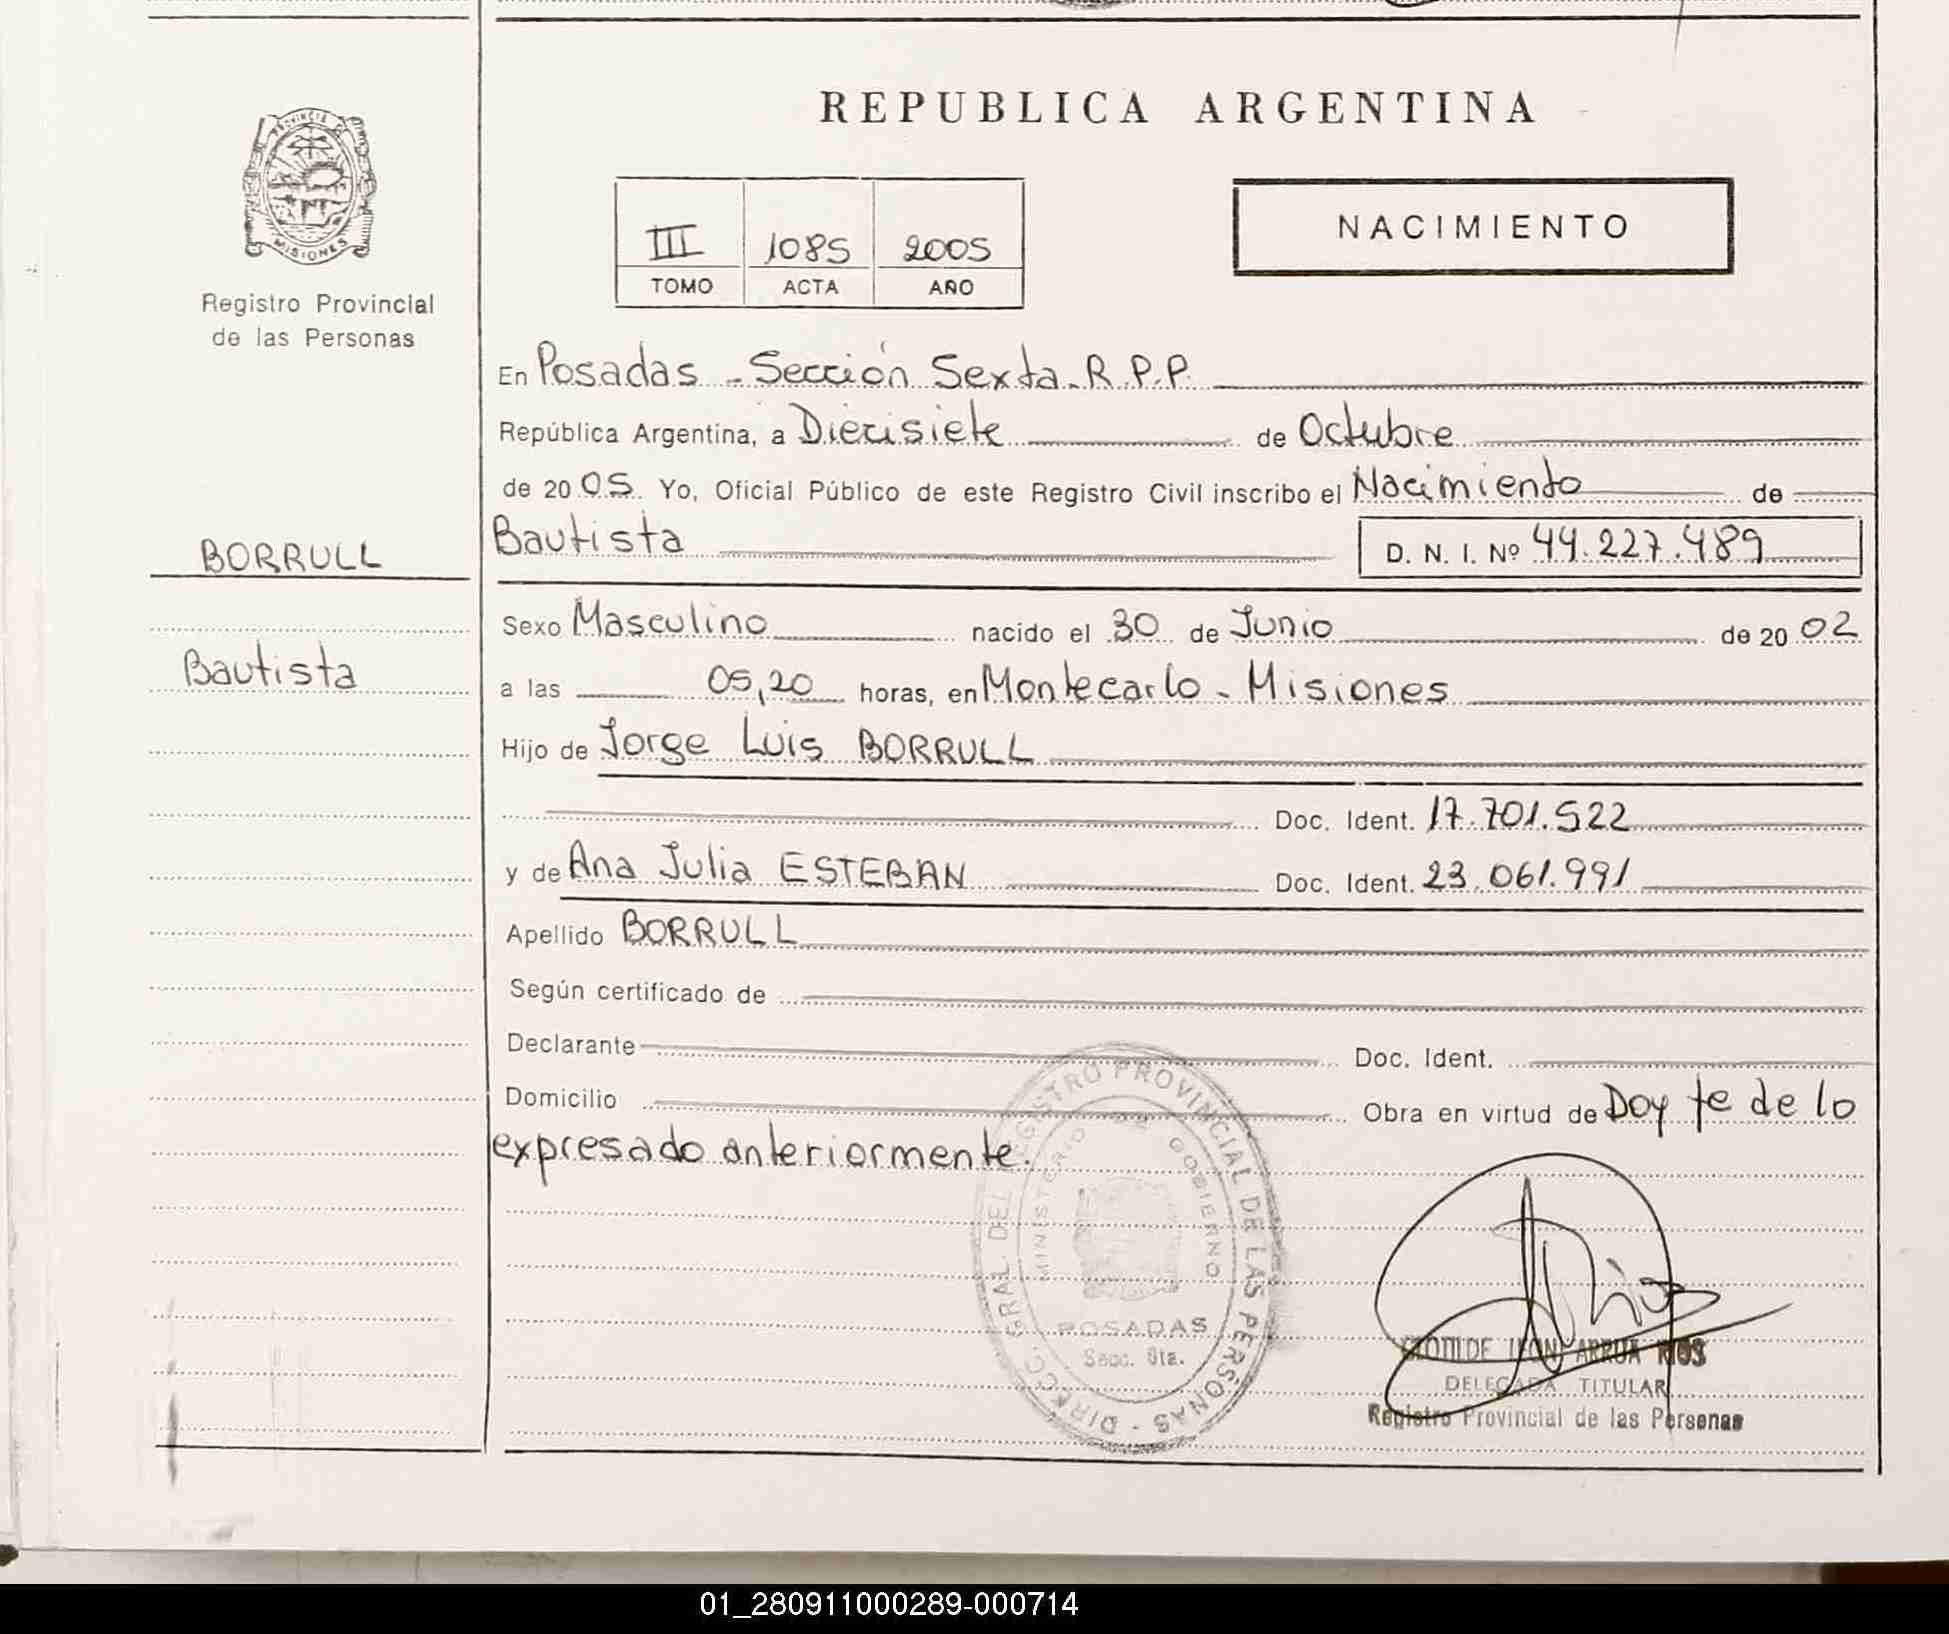 REPUBLICA ARGENTINA
PROVINCIA DE
MISIONES
Registro Provincial
de las Personas
III 1085 2005
TOMO ACTA AÑO
NACIMIENTO
En Posadas - Sección Sexta - R.P.P.
República Argentina, a Diecisiete de Octubre
de 2005. Yo, Oficial Público de este Registro Civil inscribo el Nacimiento de
BORRULL
Bautista D. N. I. Nº 44.227.489
Sexo Masculino nacido el 30 de Junio de 2002
Bautista
a las 05,20 horas, en Montecarlo - Misiones
Hijo de Jorge Luis BORRULL
Doc. Ident. 17.701.522
y de Ana Julia ESTEBAN Doc. Ident. 23.061.991
Apellido BORRULL
Según certificado de
Declarante Doc. Ident.
Domicilio Obra en virtud de Doy fe de lo
expresado anteriormente.
DIRECC. GRAL. DEL REGISTRO PROVINCIAL DE LAS PERSONAS -
MINISTERIO DE GOBIERNO
POSADAS
Secc. 6ta.
ARRUA RIOS
DELEGADA TITULAR
Registro Provincial de las Personas
01_280911000289-000714